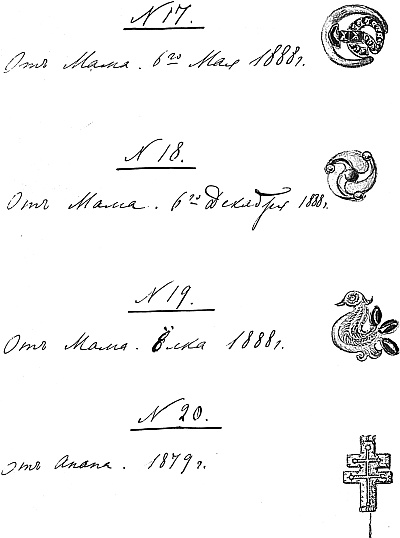 N 17.
Отъ Мама. 6го Мая 1888г.
N 18.
Отъ Мама. 6го Декабря 1888г.
N 19.
Отъ Мама. Ёлка 1888г.
N 20.
отъ Апапа. 1879г.